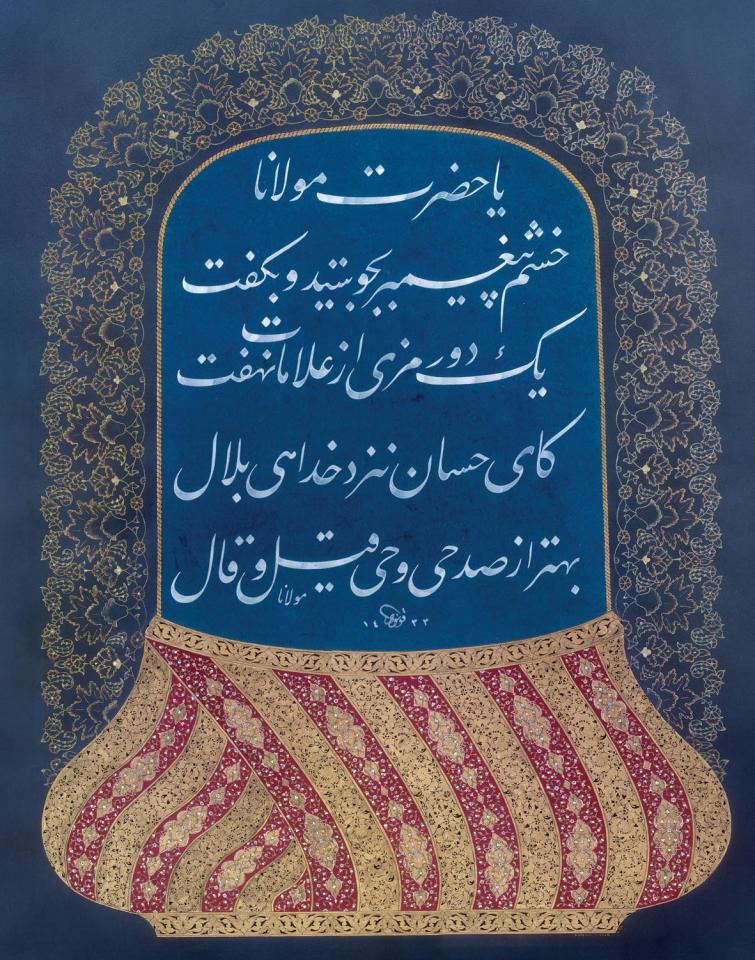 یا حضرت مولانا
خشم پیغمبر بجوشید و بگفت
یک دو رمزی از علامات نهفت
کای خسان نزد خدا هی بلال
بهتر از صد حی و حی و قیل و قال
مولانا
۱۴۳۳